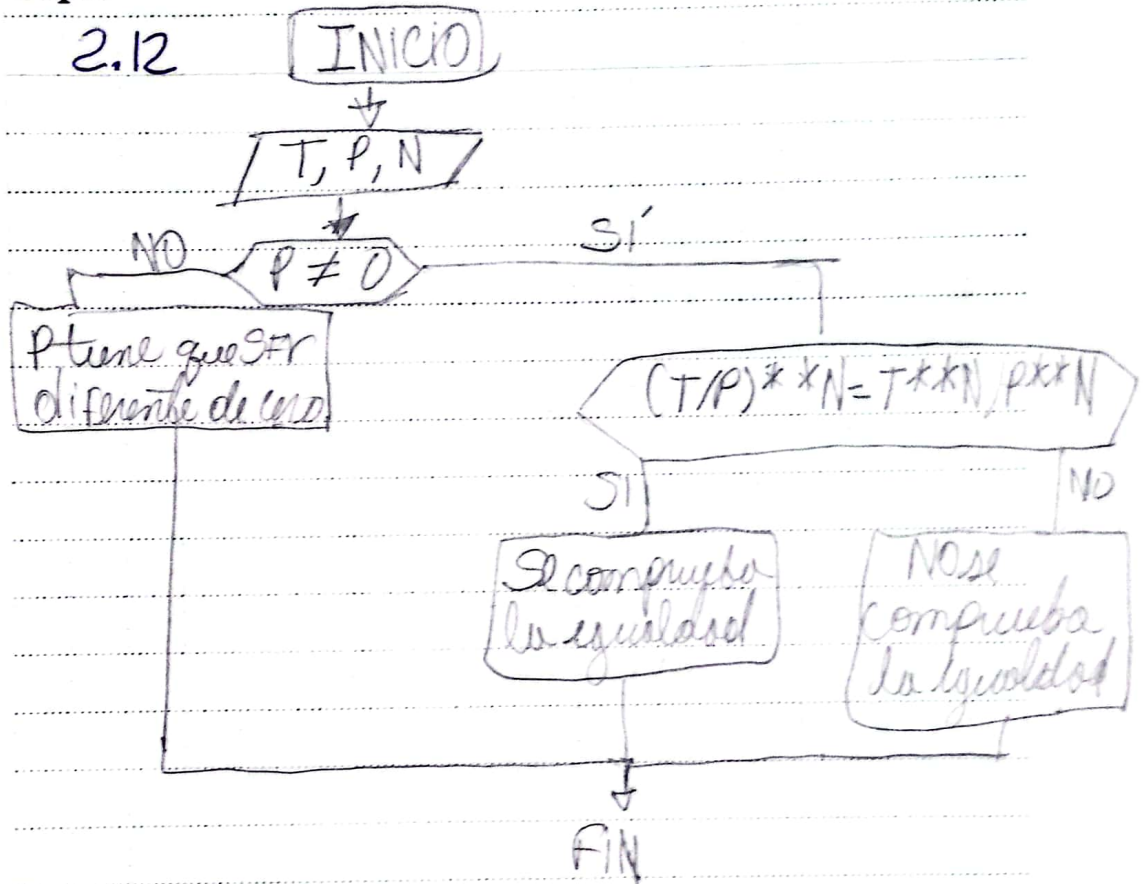 2.12
INICIO
T, P, N
NO
P ≠ 0
SÍ
P tiene que ser
diferente de cero
(T/P)**N=T**N/P**N
SI
NO
Se comprueba
la igualdad
NO se
comprueba
la igualdad
FIN